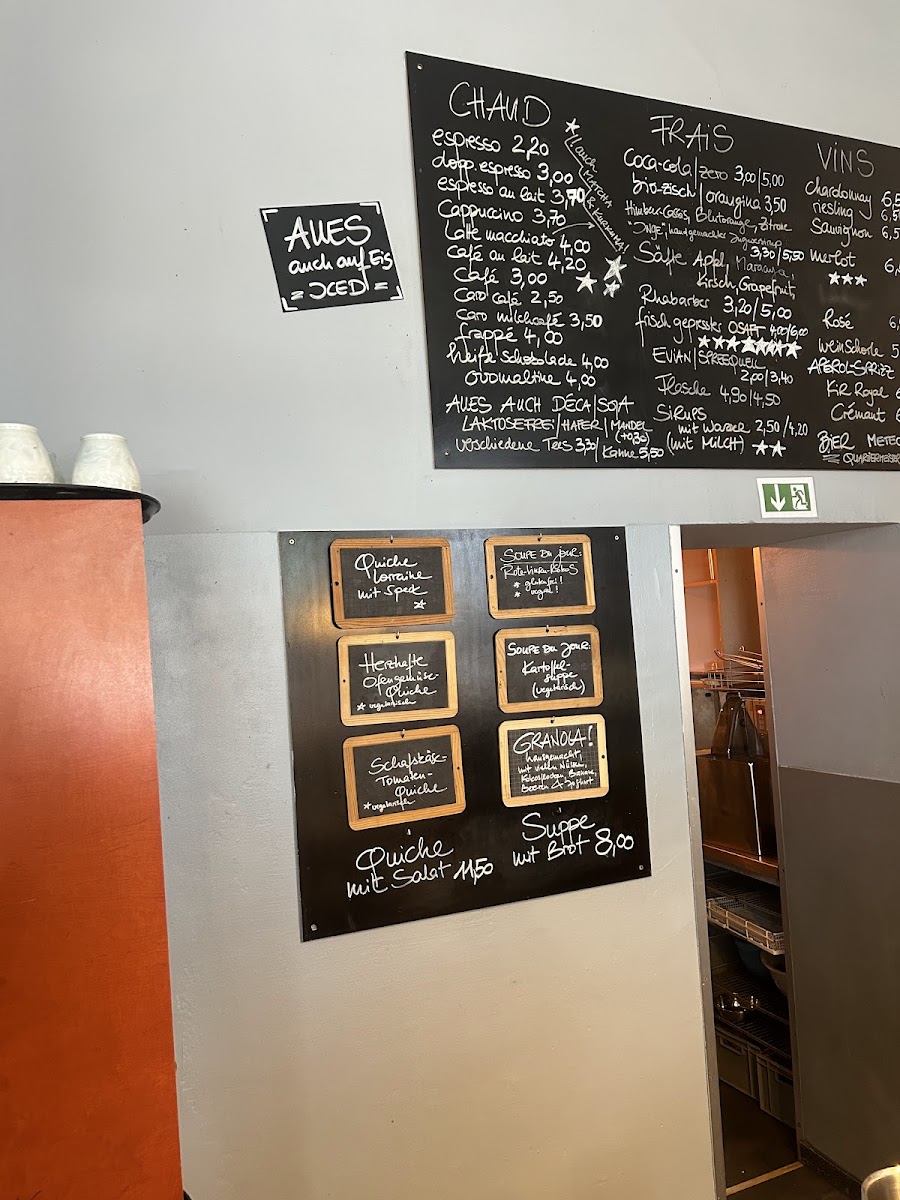 CHAUD
espresso 2,20
dopp. espresso 3,00
espresso au lait 3,70
Cappuccino 3,70
Latte macchiato 4,00
Café au lait 4,20
Café 3,00
Caro café 2,50
Caro milchcafé 3,50
frappé 4,00
heiße Schokolade 4,00
Ovomaltine 4,00
ALLES AUCH DÉCA/SOJA
LAKTOSEFREI/HAFER/MANDEL
(+0,30)
verschiedene Tees 3,30/Kanne 5,50
FRAIS
coca-cola/zero 3,00/5,00
bio-zisch/orangina 3,50
Himbeer-Cassis, Blutorange, Zitrone
"INGE", hausgemachter Ingwersirup
3,30/5,50
Säfte Apfel, Maracuja,
Kirsch, Grapefruit,
Rhabarber 3,20/5,00
frisch gepresster OSAFT 4,00/6,00
EVIAN/SPREEQUELL
2,00/3,40
Flasche 4,90/4,50
SIRUPS
mit Wasser 2,50/4,20
(mit MILCH)
VINS
chardonnay
riesling
Sauvignon
merlot
Rosé
WeinSchorle
APEROL-SPRITZ
KIR Royal
Crémant
BIER METEOR
QUARTIERMEISTER
ALLES
auch auf Eis
= ICED =
Quiche
Lorraine
mit Speck
Herzhafte
Ofengemüse-
Quiche
vegetarisch
Schafskäse-
Tomaten-
Quiche
vegetarisch
Quiche
mit Salat 11,50
SOUPE DU JOUR:
Rote-Linsen-Kokos
glutenfrei!
vegan!
SOUPE DU JOUR:
Kartoffel-
suppe
(vegetarisch)
GRANOLA!
hausgemacht,
mit vielen Nüssen,
Kokosflocken, Banane,
Beeren & Joghurt
Suppe
mit Brot 8,00